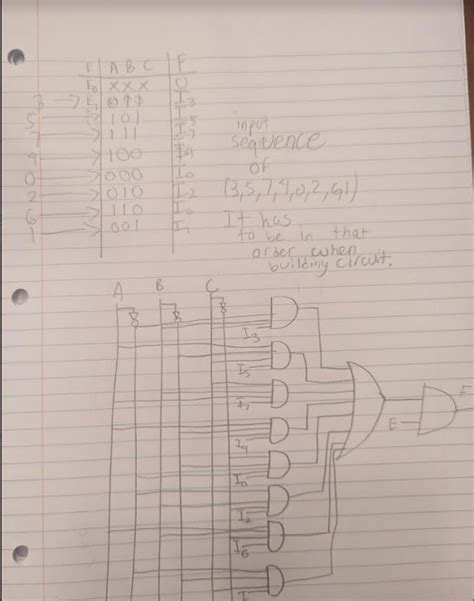 E A B C F
E₀ X X X 0
3 → E₁ 0 1 1 I₃
5 1 0 1 I₅
7 1 1 1 I₇
4 1 0 0 I₄
0 0 0 0 I₀
2 0 1 0 I₂
6 1 1 0 I₆
1 0 0 1 I₁
input
sequence
of
(3,5,7,4,0,2,6,1)
It has
to be in that
order when
building circuit.
A B C
I₃
I₅
I₇
I₄
E F
I₀
I₂
I₆
I